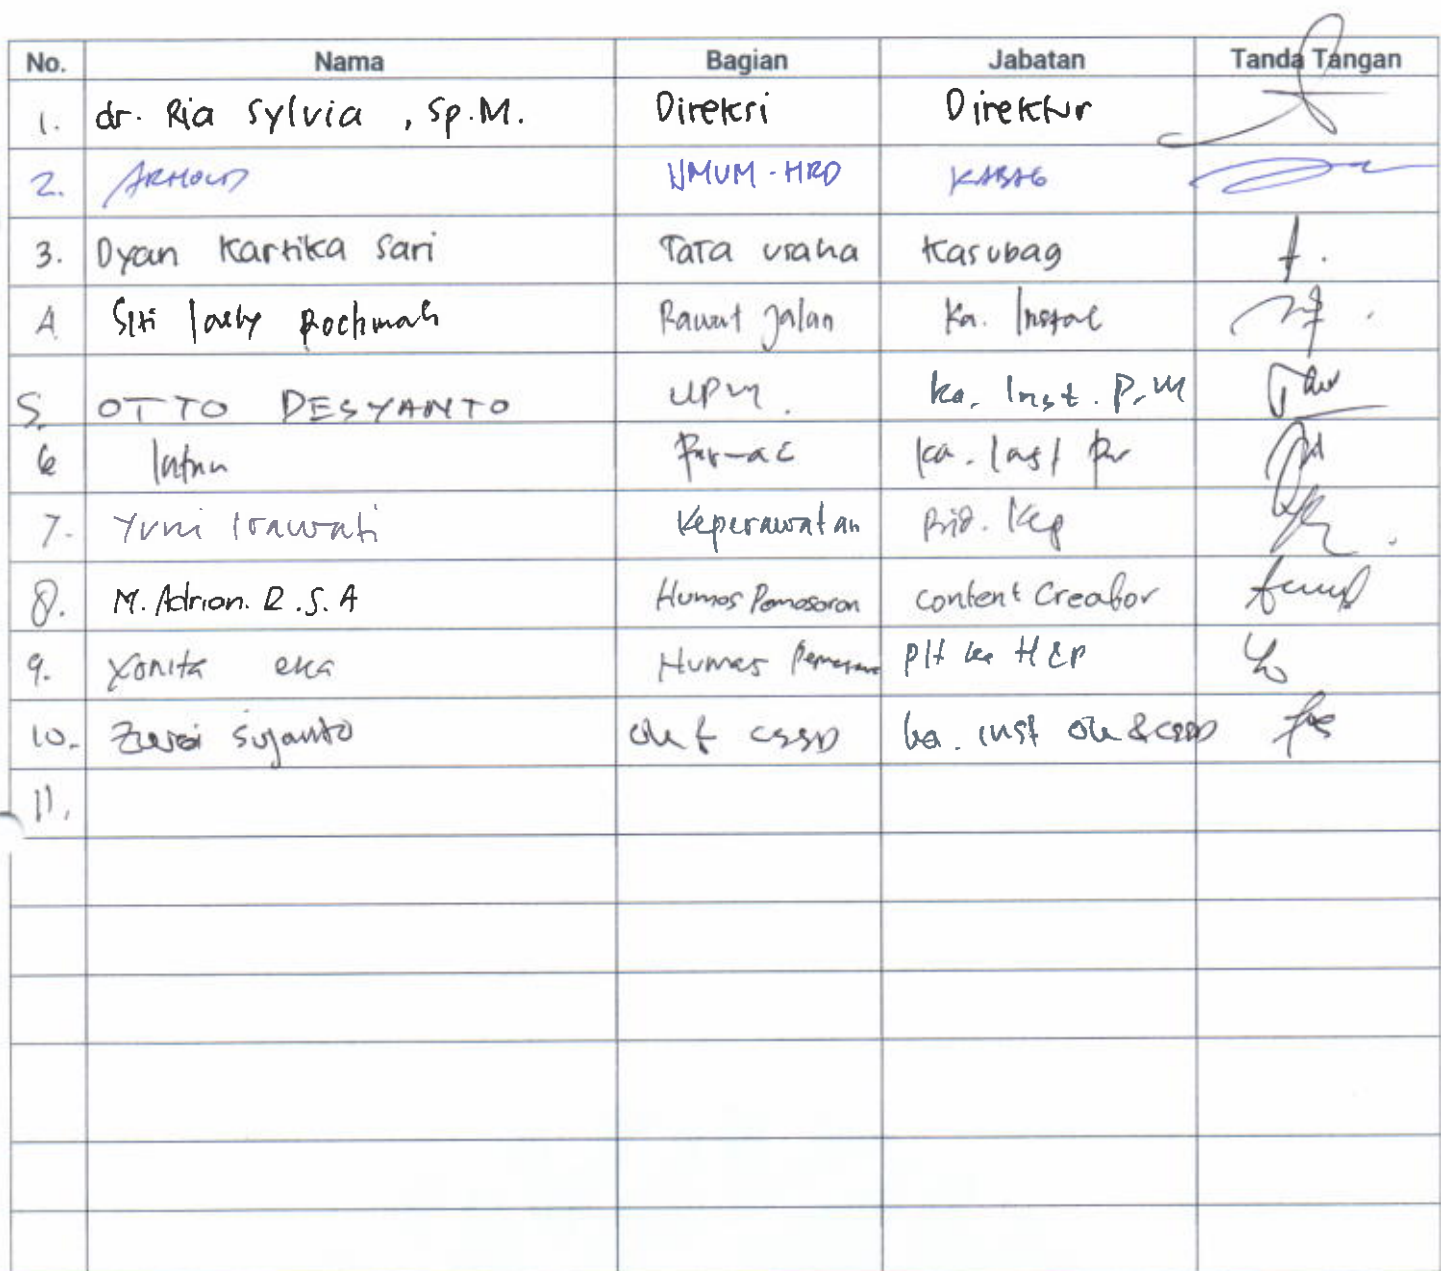 No. Nama Bagian Jabatan Tanda Tangan
1. dr. Ria Sylvia, Sp.M. Direksi Direktur
2. ARNOLD UMUM - HRD KABAG
3. Dyan Kartika Sari Tata usaha Kasubag
4. Siti Rochmah Rawat Jalan Ka. Instal
5. OTTO DESYANTO UPM. ka. Inst. P.M
6 ka. Inst
7. Yuni Irawati Keperawatan Kep
8. M. Adrian. R.S.A Humas Pemasaran Content Creator
9. Yonita eka Humas Pemasaran plt ka H&P
10. Sujanto CSSD ka. inst & CSSD
11.